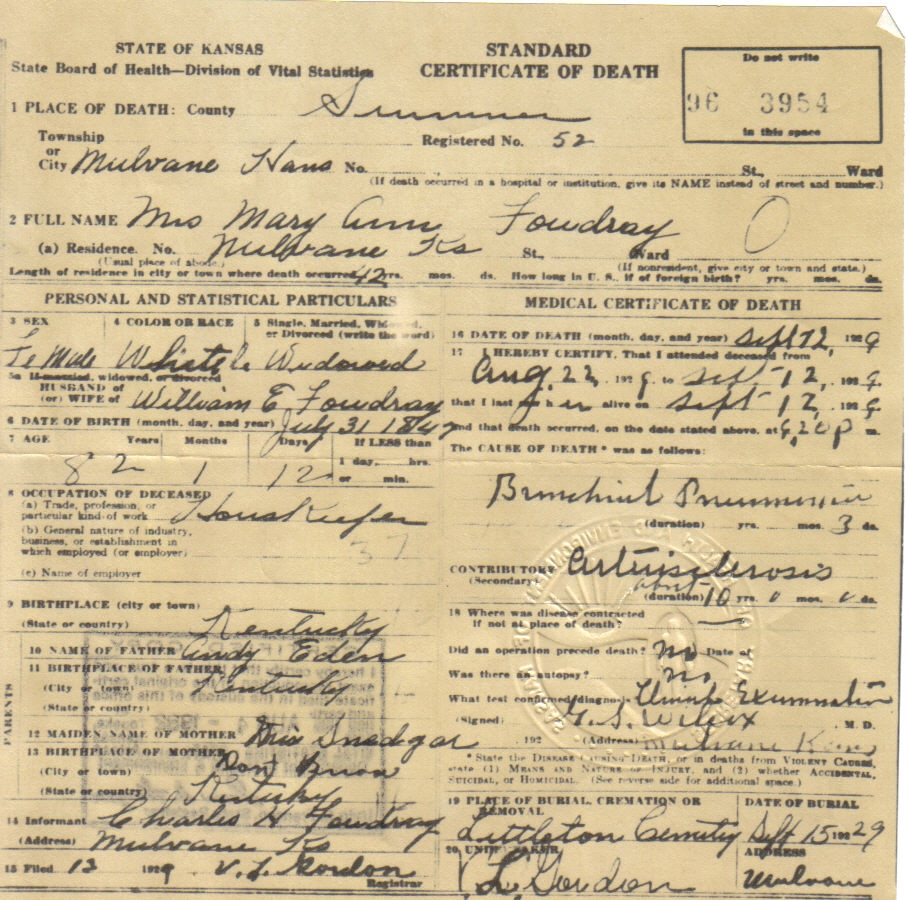 STATE OF KANSAS
State Board of Health—Division of Vital Statistics
STANDARD
CERTIFICATE OF DEATH
Do not write
96 3954
in this space
1 PLACE OF DEATH: County Sumner
Township
or
City Mulvane Kans No. St., Ward
Registered No. 52
(If death occurred in a hospital or institution, give its NAME instead of street and number.)
2 FULL NAME Mrs Mary Ann Fowdray
(a) Residence. No. Mulvane Ks St., Ward
(Usual place of abode.) (If nonresident, give city or town and state.)
Length of residence in city or town where death occurred 42 yrs. mos. ds. How long in U. S., if of foreign birth? yrs. mos. ds.
PERSONAL AND STATISTICAL PARTICULARS
3 SEX 4 COLOR OR RACE 5 Single, Married, Widowed, or Divorced (write the word)
Fe Male White Widowed
5a If married, widowed, or divorced
HUSBAND of
(or) WIFE of William E Fowdray
6 DATE OF BIRTH (month, day, and year) July 31 1847
7 AGE Years Months Days If LESS than
1 day, hrs.
or min.
82 1 12
8 OCCUPATION OF DECEASED
(a) Trade, profession, or
particular kind of work HousKeefer
(b) General nature of industry,
business, or establishment in
which employed (or employer)
37
(c) Name of employer
9 BIRTHPLACE (city or town)
(State or country) Kentucky
10 NAME OF FATHER Andy Eden
11 BIRTHPLACE OF FATHER
(City or town) Kentucky
(State or country)
PARENTS
12 MAIDEN NAME OF MOTHER Snedgar
13 BIRTHPLACE OF MOTHER
(City or town) Dont
(State or country) Kentucky
14 Informant Charles H Fowdray
(Address) Mulvane Ks
15 Filed 13 1929 V. L. Gordon
Registrar
MEDICAL CERTIFICATE OF DEATH
16 DATE OF DEATH (month, day, and year) Sept 12, 1929
17 I HEREBY CERTIFY, That I attended deceased from
Aug. 22, 1929 to Sept-12, 1929
that I last saw her alive on Sept 12, 1929
and that death occurred, on the date stated above, at 9,20 P m.
The CAUSE OF DEATH* was as follows:
Bronchial Pneumonia
(duration) yrs. mos. 3 ds.
CONTRIBUTORY Arteriosclerosis
(Secondary)
about
(duration) 10 yrs. 0 mos. 0 ds.
18 Where was disease contracted
if not at place of death?
Did an operation precede death? No Date of
Was there an autopsy? No
What test confirmed diagnosis? Clinic Examination
(Signed) G. S. Wilcox M. D.
192 (Address) Mulvane Kans
* State the Disease Causing Death, or in deaths from Violent Causes,
state (1) Means and Nature of Injury, and (2) whether Accidental,
Suicidal, or Homicidal. (See reverse side for additional space.)
19 PLACE OF BURIAL, CREMATION OR REMOVAL DATE OF BURIAL
Littleton Cemetry Sept 15 1929
20 UNDERTAKER ADDRESS
L. Gordon Mulvane